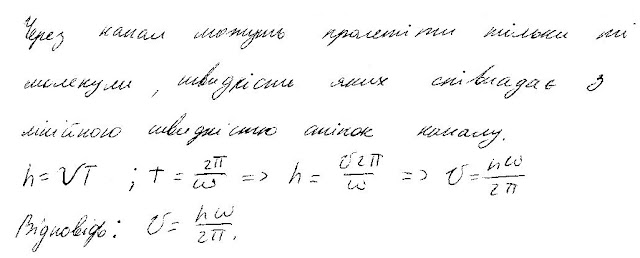 Через канал можуть пролетіти тільки ті
молекули, швидкість яких співпадає з
лінійною швидкістю стінок каналу.
h = VT ; T = 2π/ω => h = υ2π/ω => υ = hω/2π
Відповідь: υ = hω/2π.